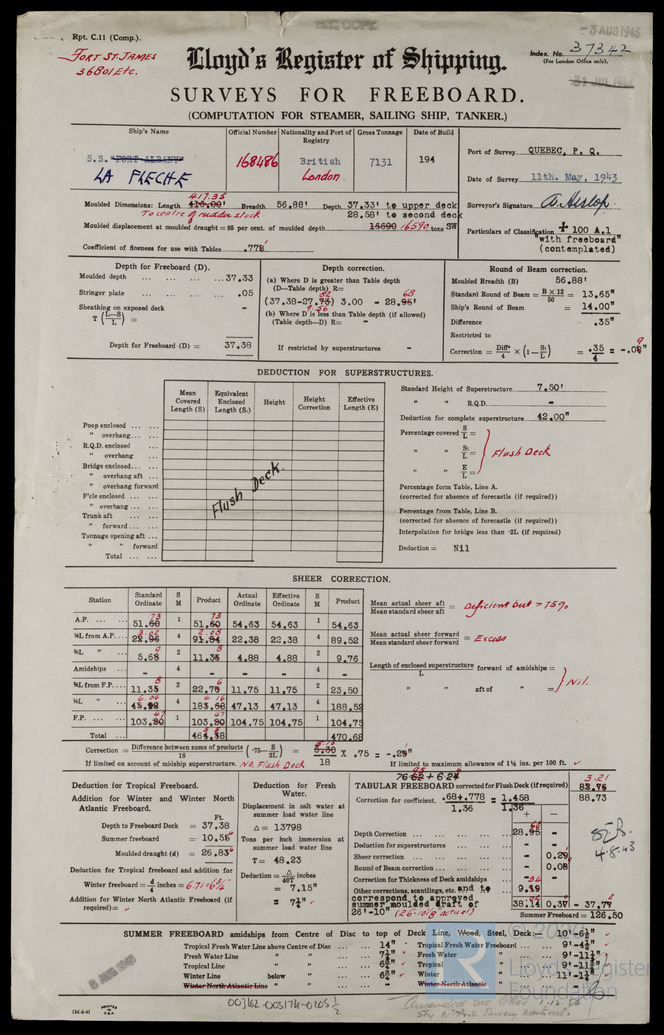 Rpt. C.11 (Comp.).
FORT ST. JAMES
36801 Etc.
3 AUG 1943
Index. No. 37342
(For London Office only).
Lloyd's Register of Shipping.
SURVEYS FOR FREEBOARD.
(COMPUTATION FOR STEAMER, SAILING SHIP, TANKER.)
Ship's Name
Official Number
Nationality and Port of Registry
Gross Tonnage
Date of Build
S.S. "FORT ALBANY"
LA FLECHE
168486
British
London.
7131
194
Port of Survey QUEBEC, P. Q.
Date of Survey 11th. May, 1943
Surveyor's Signature
Particulars of Classification + 100 A.1
"with freeboard"
(contemplated)
417.35
Moulded Dimensions: Length 416.00' Breadth 56.88' Depth 37.33' to upper deck
To centre of rudder stock
28.58' to second deck
Moulded displacement at moulded draught = 85 per cent. of moulded depth 16600 16590 tons SW
Coefficient of fineness for use with Tables .778
Depth for Freeboard (D).
Moulded depth ... ... ... ... 37.33
Stringer plate ... ... ... ... .05
Sheathing on exposed deck -
T (L-S/L) =
Depth for Freeboard (D) = 37.38
Depth correction.
(a) Where D is greater than Table depth
(D—Table depth) R=
(37.38-27.73) 3.00 - 28.95'
(b) Where D is less than Table depth (if allowed)
(Table depth—D) R= -
If restricted by superstructures -
Round of Beam correction.
Moulded Breadth (B) 56.88'
Standard Round of Beam = B × 12 / 50 = 13.65"
Ship's Round of Beam = 14.00"
Difference .35"
Restricted to
Correction = Diff. / 4 × (1 - S₁/L) = .35 / 4 = -.08"
DEDUCTION FOR SUPERSTRUCTURES.
Mean Covered Length (S)
Equivalent Enclosed Length (S₁)
Height
Height Correction
Effective Length (E)
Poop enclosed ... ...
" overhang ... ...
R.Q.D. enclosed ...
" overhang ...
Bridge enclosed ... ...
" overhang aft ...
" overhang forward
F'cle enclosed ... ...
" overhang ... ...
Trunk aft ... ...
" forward ... ...
Tonnage opening aft ...
" " forward
Total ... ...
Flush Deck.
Standard Height of Superstructure 7.50'
" " R.Q.D. -
Deduction for complete superstructure 42.00"
Percentage covered S/L =
" " S₁/L = Flush Deck
" " E/L =
Percentage form Table, Line A.
(corrected for absence of forecastle (if required))
Percentage from Table, Line B.
(corrected for absence of forecastle (if required))
Interpolation for bridge less than ·2L (if required)
Deduction = Nil
SHEER CORRECTION.
Station
Standard Ordinate
S M
Product
Actual Ordinate
Effective Ordinate
S M
Product
A.P. ... ... 51.60 1 51.60 54.63 54.63 1 54.63
⅙L from A.P. ... 22.96 4 91.84 22.38 22.38 4 89.52
⅓L " ... 5.68 2 11.36 4.88 4.88 2 9.76
Amidships ... - 4 - - - 4 -
⅓L from F.P. ... 11.35 2 22.70 11.75 11.75 2 23.50
⅙L " ... 45.92 4 183.68 47.13 47.13 4 188.52
F.P. ... ... 103.20 1 103.20 104.75 104.75 1 104.75
Total ... 464.38 470.68
Mean actual sheer aft / Mean standard sheer aft = Deficient but > 75%
Mean actual sheer forward / Mean standard sheer forward = Excess
Length of enclosed superstructure / L forward of amidships =
" " aft of " = Nil.
Correction = Difference between sums of products / 18 (·75 - S/2L) = 6.30 / 18 X .75 = -.29"
If limited on account of midship superstructure. No, Flush Deck
If limited to maximum allowance of 1½ ins. per 100 ft.
Deduction for Tropical Freeboard.
Addition for Winter and Winter North Atlantic Freeboard.
Ft.
Depth to Freeboard Deck = 37.38
Summer freeboard = 10.55
Moulded draught (d) = 26.83
Deduction for Tropical freeboard and addition for
Winter freeboard = d/4 inches = 6.71 = 6¾"
Addition for Winter North Atlantic Freeboard (if required) =
Deduction for Fresh Water.
Displacement in salt water at summer load water line
Δ = 13798
Tons per inch immersion at summer load water line
T = 48.23
Deduction = Δ / 40T inches
= 7.15"
= 7¼"
TABULAR FREEBOARD corrected for Flush Deck (if required)
82.76
Correction for coefficient. .684.778 / 1.36 = 1.458 / 1.36
88.73
+ -
Depth Correction ... ... ... 28.95 -
Deduction for superstructures ... ... - -
Sheer correction ... ... ... - 0.29
Round of Beam correction ... ... - 0.08
Correction for Thickness of Deck amidships -
Other corrections, scantlings, etc. and to 9.19
correspond to approved
summer moulded draft of
26'-10" (26-10⅛ actual)
38.14 0.37 - 37.77
Summer Freeboard = 126.50
4.8.43
SUMMER FREEBOARD amidships from Centre of Disc to top of Deck Line, Wood, Steel, Deck:— 10'-6½"
Tropical Fresh Water Line above Centre of Disc ... 14" Tropical Fresh Water Freeboard ... 9'-4½"
Fresh Water Line " " ... 7¼" Fresh Water " 9'-11¼"
Tropical Line " " ... 6¾" Tropical " 9'-11¾"
Winter Line below " ... 6¾" Winter " 11'-1¼"
Winter North Atlantic Line " " Winter North Atlantic "
1M-6-41
PRINTED IN U.S.A.
6 AUG 1943
003162-003174-0205½
Lloyd's Register
Foundation